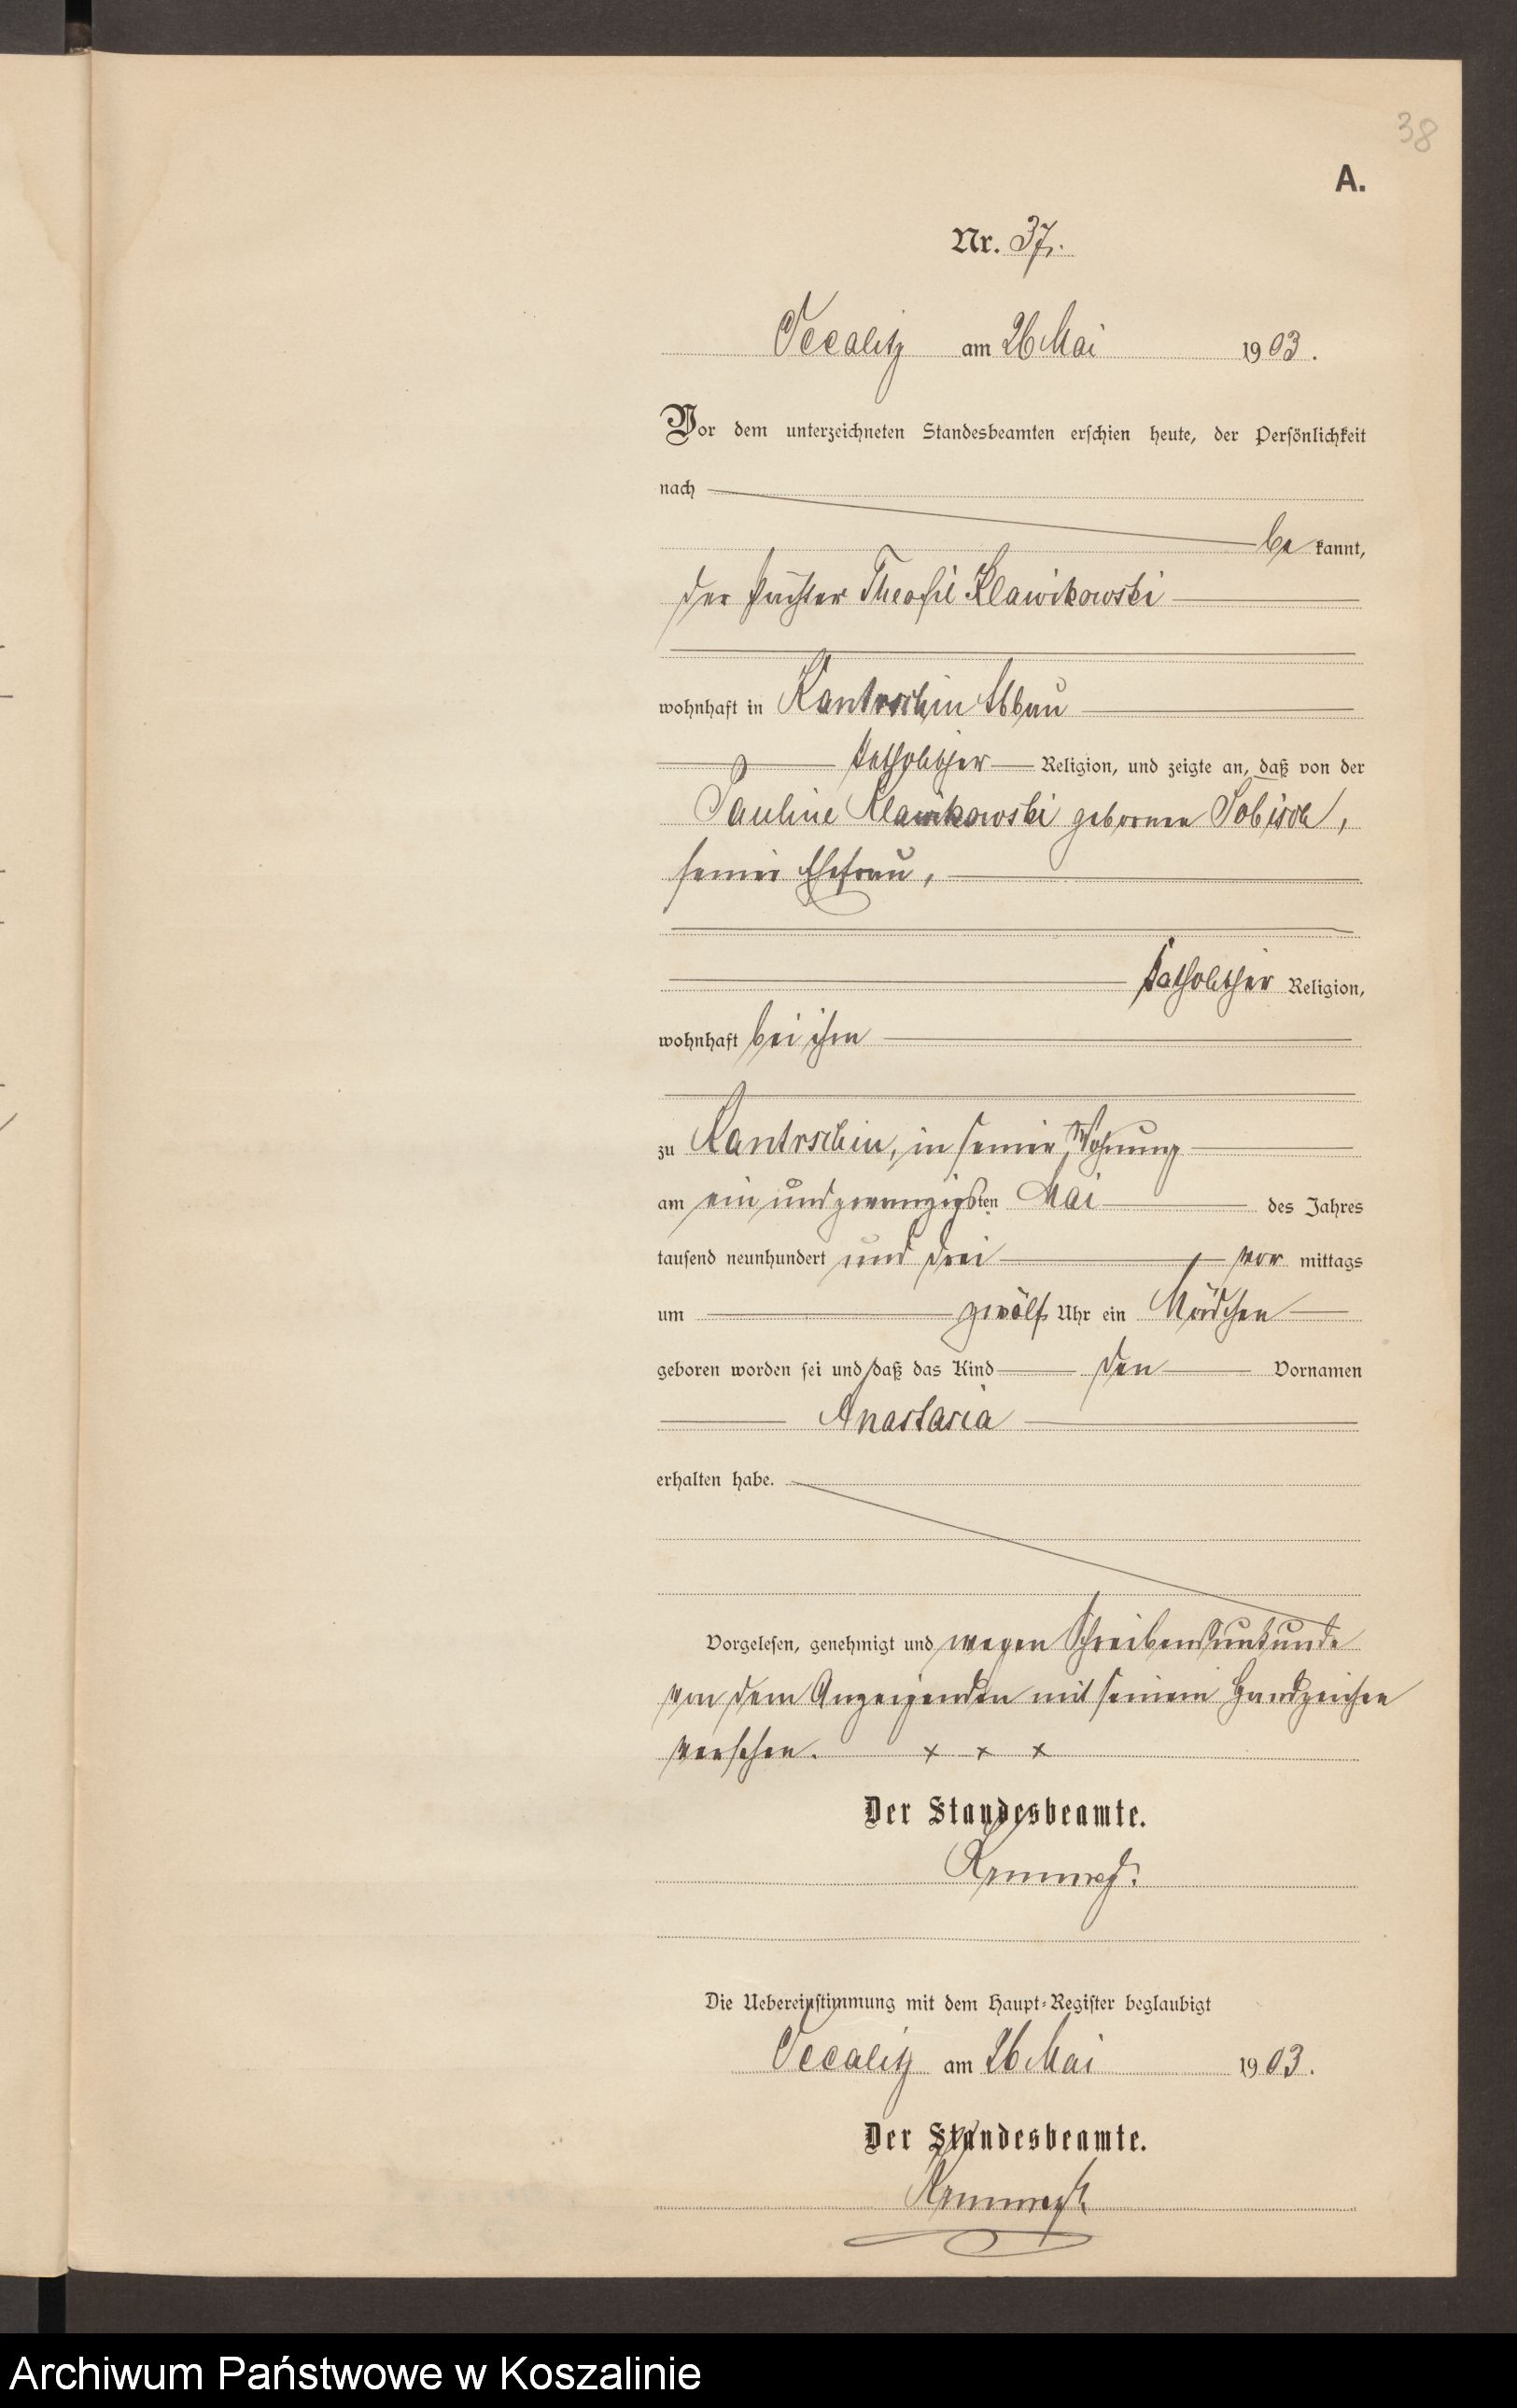 38
A.
Nr. 37.
Vccalitz am 26 Mai 1903.
Vor dem unterzeichneten Standesbeamten erschien heute, der Persönlichkeit
nach
be kannt,
der Pächter Theofil Klawikowski
wohnhaft in Kantrschin Abbau
katholischer Religion, und zeigte an, daß von der
Pauline Klawikowski geborenen
seiner Ehefrau,
katholischer Religion,
wohnhaft bei ihm
zu Kantrschin, in seiner Wohnung
am ein und zwanzigsten Mai des Jahres
tausend neunhundert und drei vor mittags
um zwölf Uhr ein Mädchen
geboren worden sei und daß das Kind den Vornamen
Anastasia
erhalten habe.
Vorgelesen, genehmigt und wegen Schreibensunkunde
von dem Anzeigenden mit seinem Handzeichen
versehen. x x x
Der Standesbeamte.
Die Uebereinstimmung mit dem Haupt-Register beglaubigt
Vccalitz am 26 Mai 1903.
Der Standesbeamte.
Archiwum Państwowe w Koszalinie